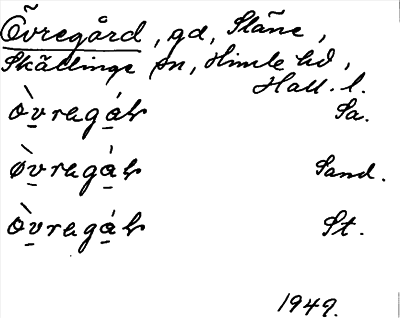 Övregård, gd, Släne,
Skällinge sn, Himle hd,
Hall. l.
òvregár Sa.
ø̀vregár Sand.
òvregár St.
1949.